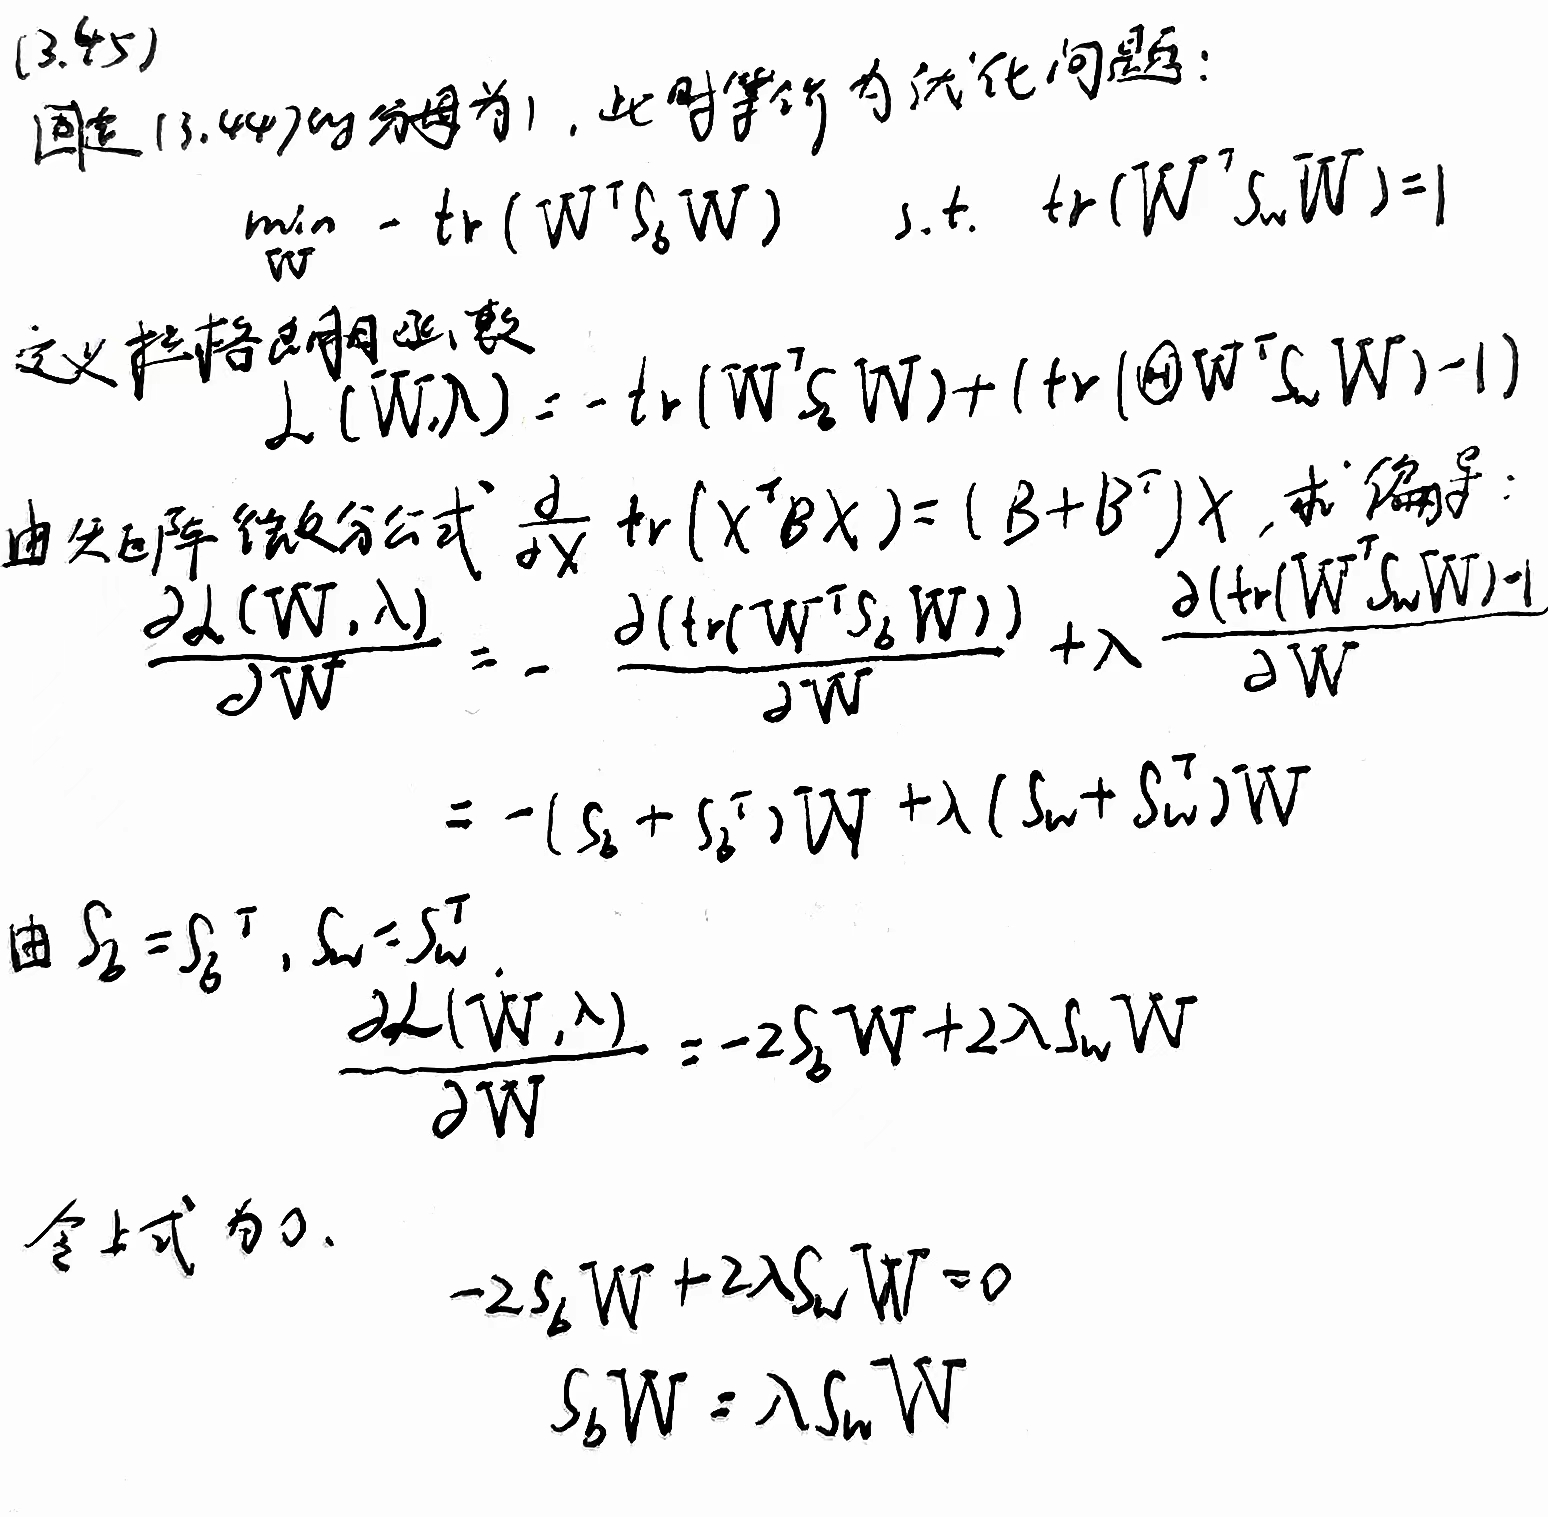 (3.45)
固定(3.44)的分母为1,此时等价为优化问题:
min_W -tr(WᵀS_bW)  s.t.  tr(WᵀS_wW)=1
定义拉格朗日函数
L(W,λ)=-tr(WᵀS_bW)+(tr(ΘWᵀS_wW)-1)
由矩阵微分公式 d/dX tr(XᵀBX)=(B+Bᵀ)X,求偏导:
∂L(W,λ)/∂W = -∂(tr(WᵀS_bW))/∂W +λ ∂(tr(WᵀS_wW)-1/∂W
=-(S_b+S_bᵀ)W+λ(S_w+S_wᵀ)W
由S_b=S_bᵀ,S_w=S_wᵀ.
∂L(W,λ)/∂W =-2S_bW+2λS_wW
令上式为0.
-2S_bW+2λS_wW=0
S_bW=λS_wW